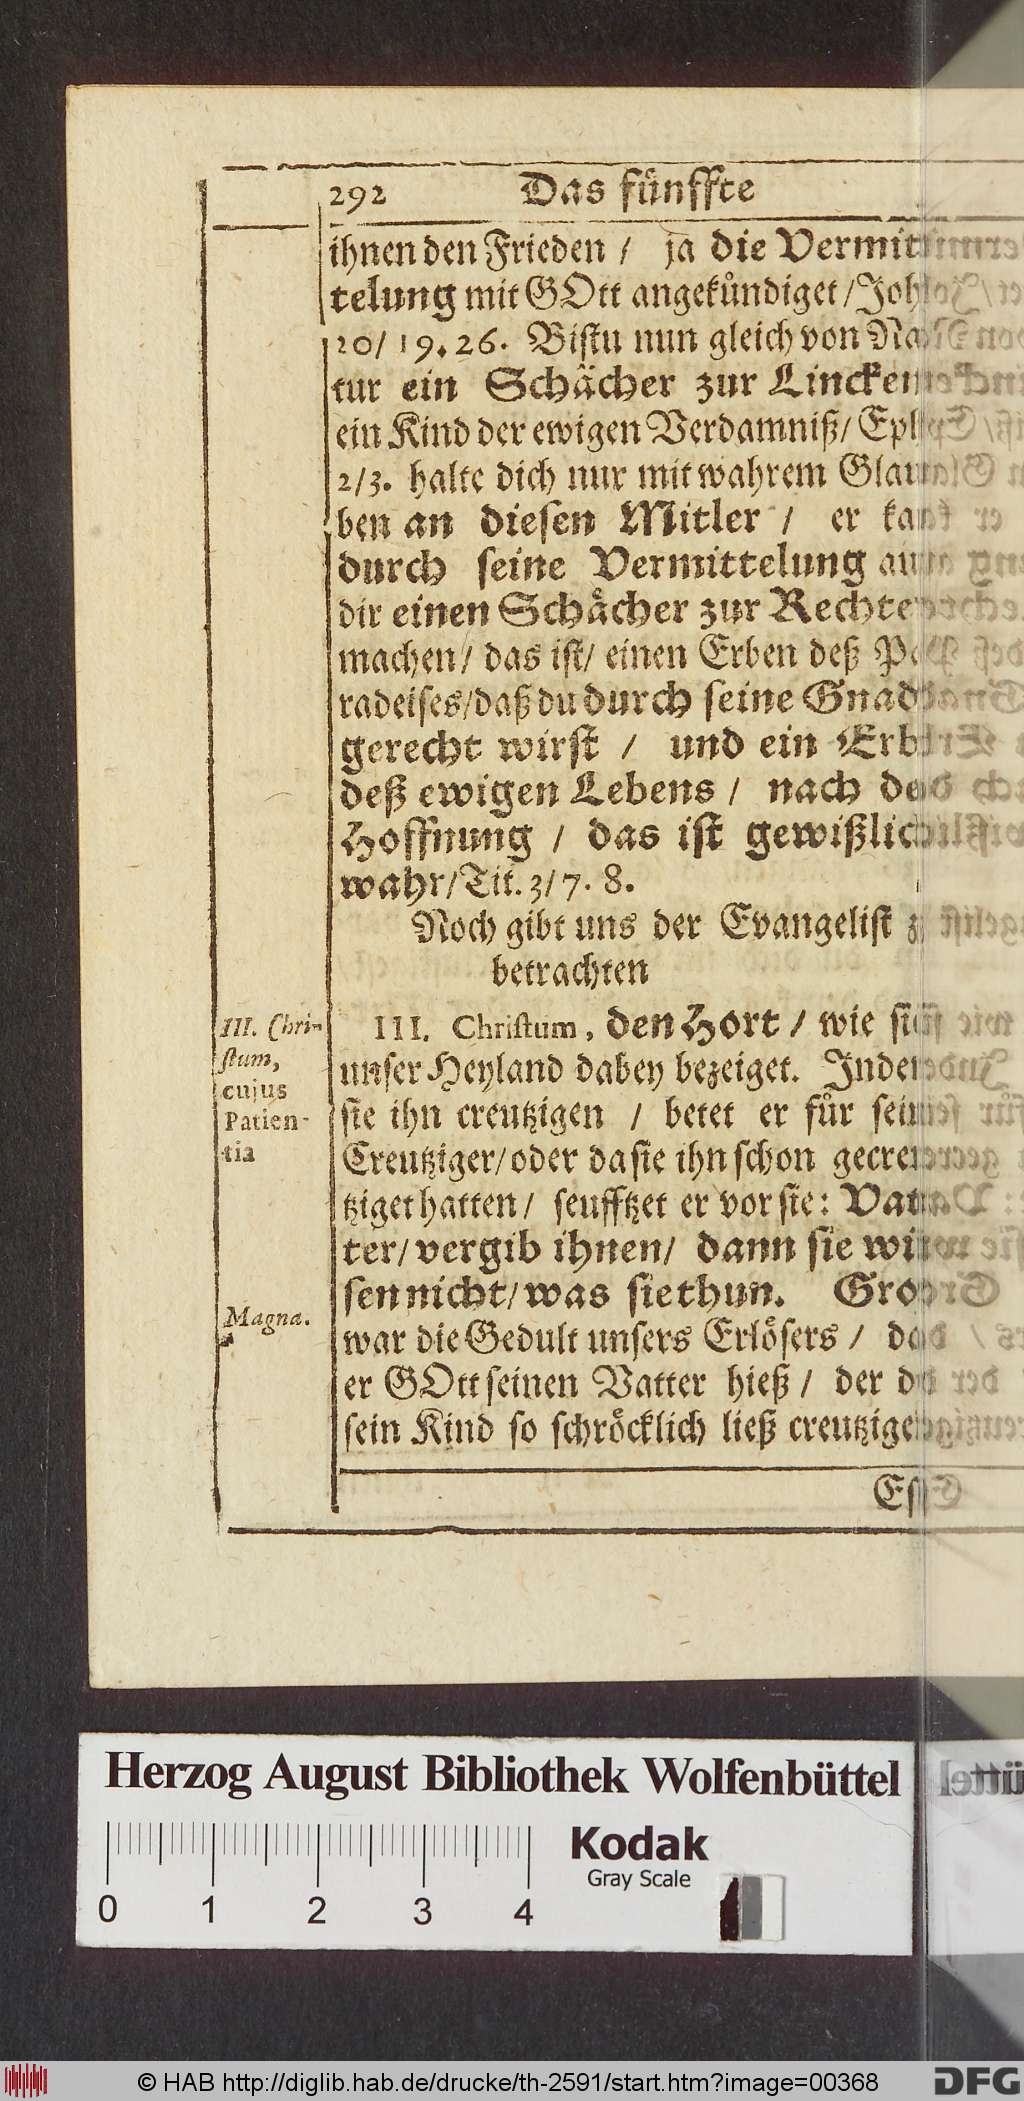 292 Das fünffte
ihnen den Frieden / ja die Vermit
telung mit GOtt angekündiget / Joh
20/19.26. Bistu nun gleich von Na
tur ein Schächer zur Lincken
ein Kind der ewigen Verdamniß / Eph
2/3. halte dich nur mit wahrem Glau
ben an diesen Mitler / er kan
durch seine Vermittelung auß
dir einen Schächer zur Rechten
machen / das ist / einen Erben deß Pa
radeises / daß du durch seine Gnad
gerecht wirst / und ein Erb
deß ewigen Lebens / nach der
Hoffnung / das ist gewißlich
wahr / Tit. 3/7. 8.
Noch gibt uns der Evangelist zu
betrachten
III. Chri-
stum,
cujus
Patien-
tia
III. Christum, den Hort / wie sich
unser Heyland dabey bezeiget. Indem
sie ihn creutzigen / betet er für seine
Creutziger / oder da sie ihn schon gecreu
tziget hatten / seufftzet er vor sie: Vat
ter / vergib ihnen / dann sie wis
sen nicht / was sie thun. Groß
Magna.
war die Gedult unsers Erlösers / daß
er GOtt seinen Vatter hieß / der doch
sein Kind so schröcklich ließ creutzigen
Herzog August Bibliothek Wolfenbüttel
Kodak
Gray Scale
0 1 2 3 4
© HAB http://diglib.hab.de/drucke/th-2591/start.htm?image=00368
DFG